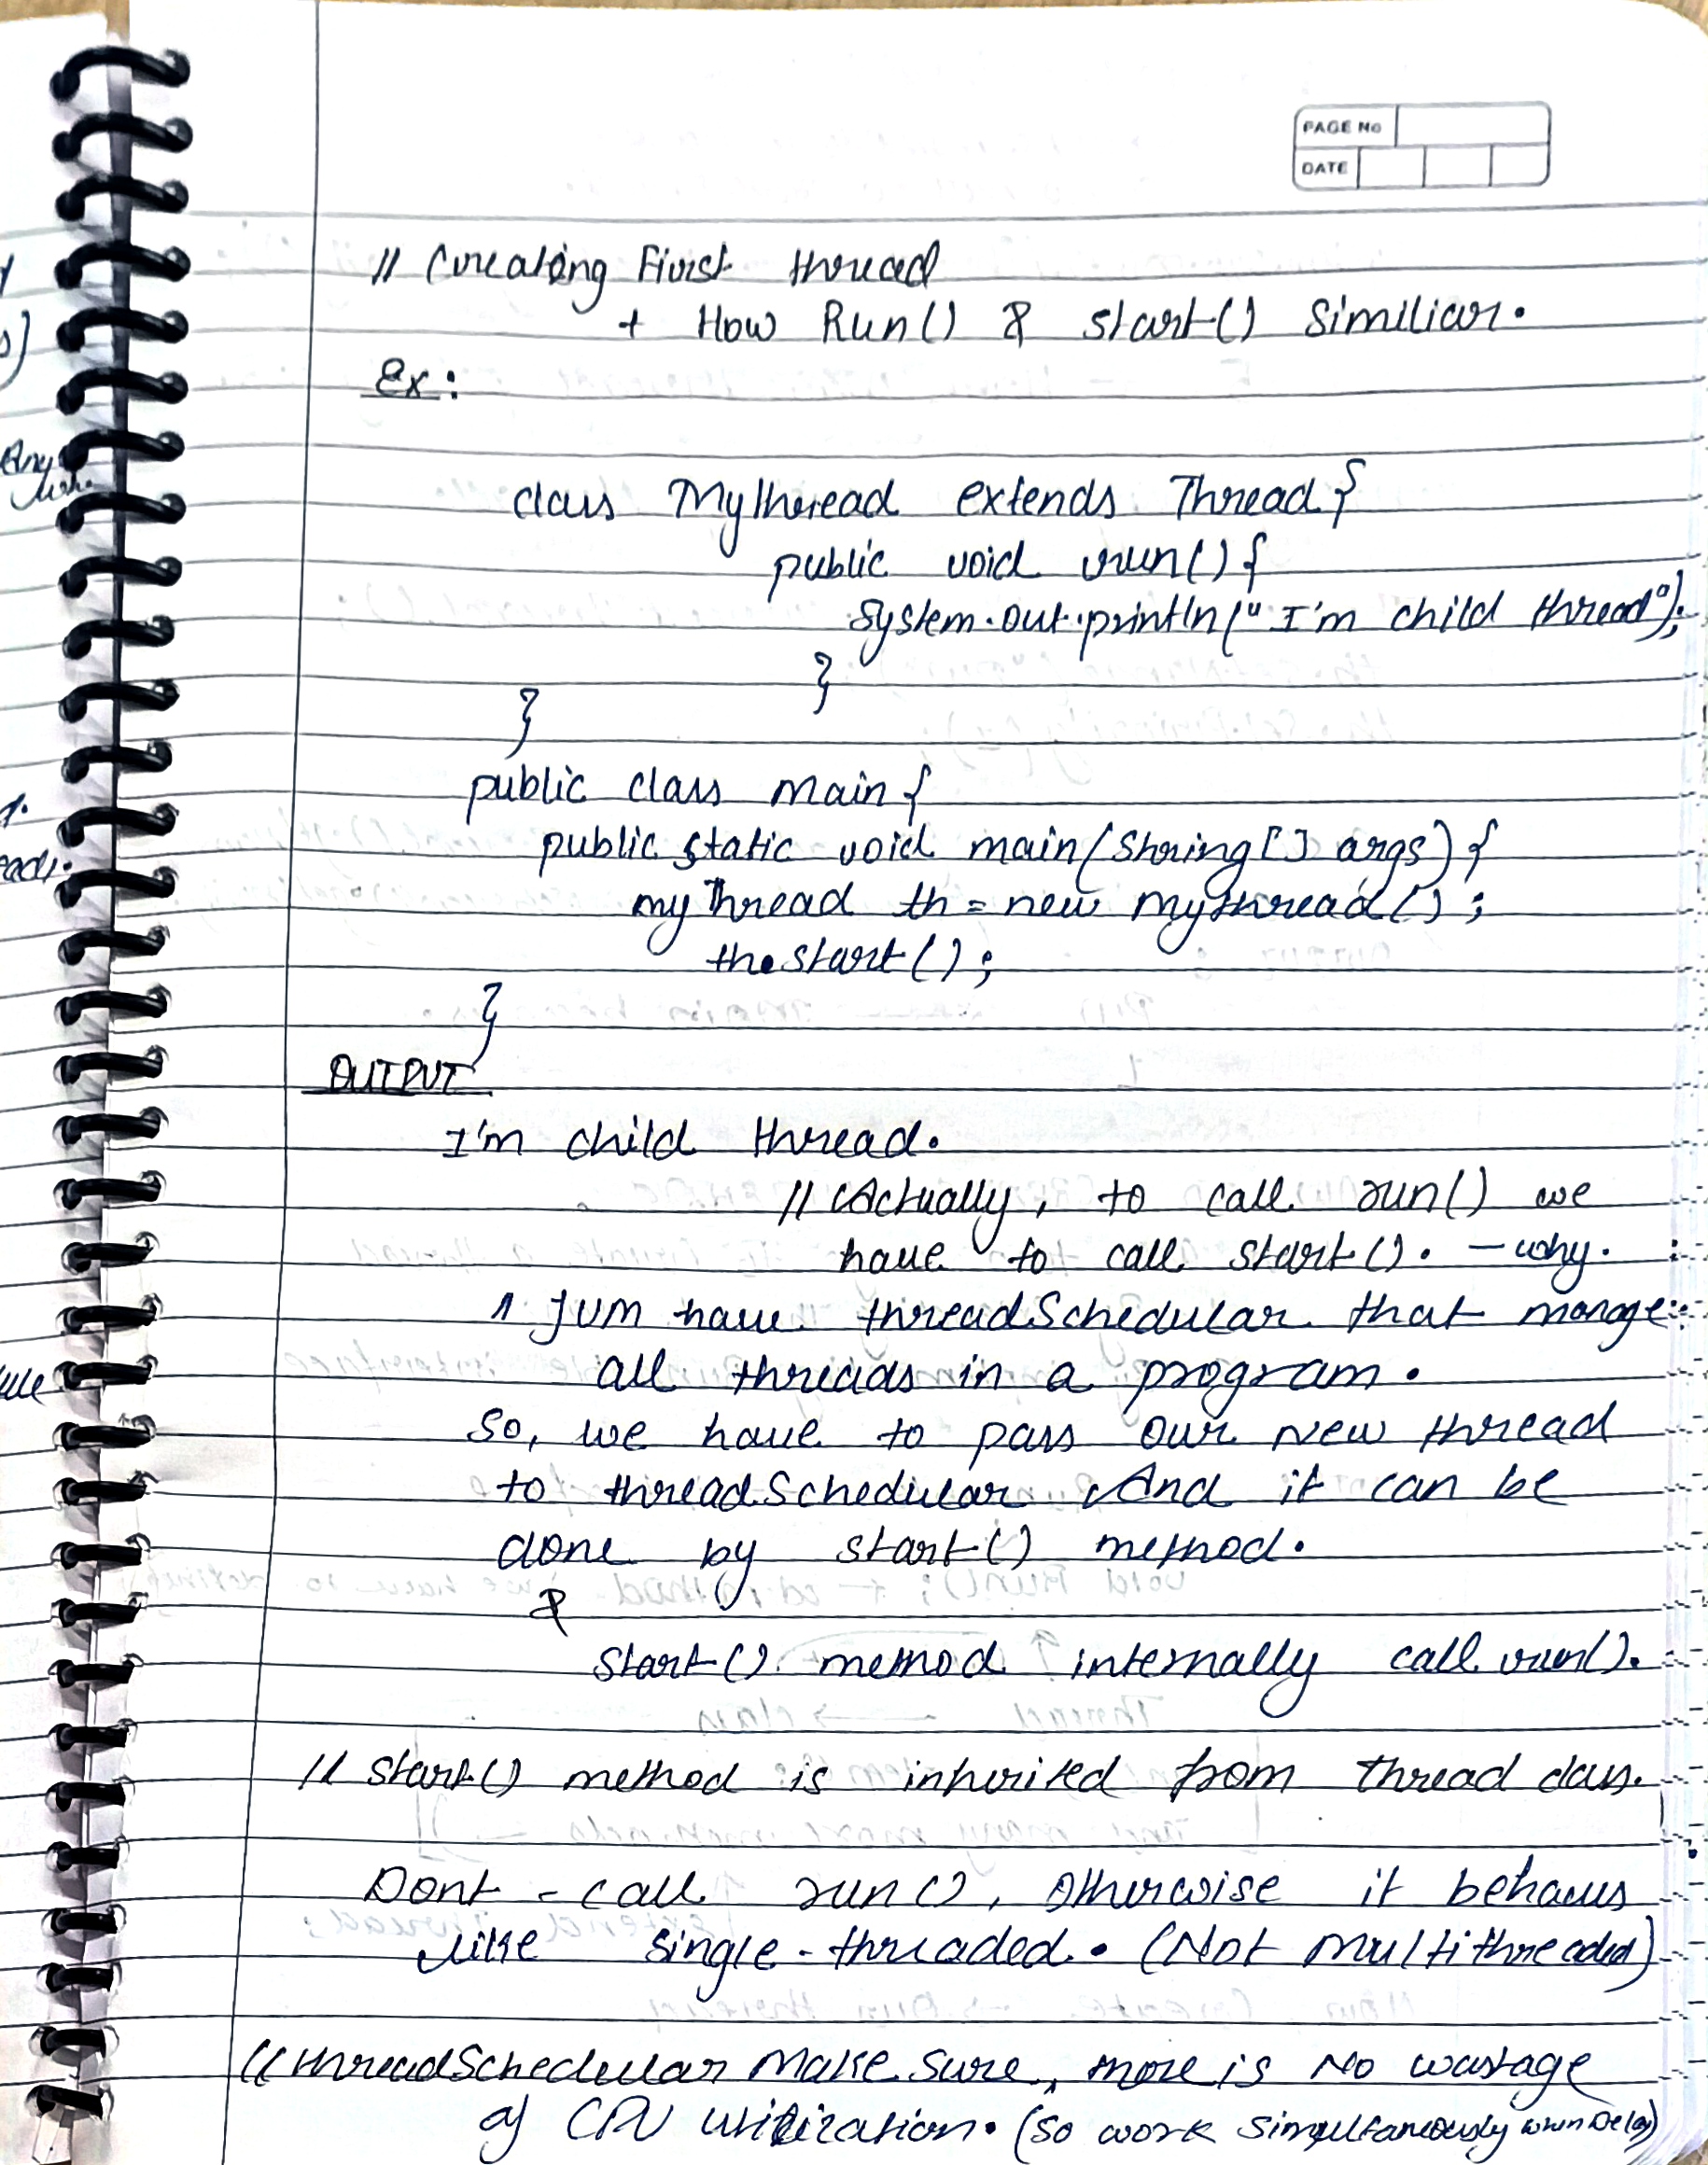 PAGE No
DATE
// Creating First thread
+ How Run() & start() Similiar.
Ex:
class MyThread extends Thread {
public void run() {
System.out.println("I'm child thread");
}
}
public class main {
public static void main(String[] args) {
myThread th = new mythread();
th.start();
}
OUTPUT
I'm child thread.
// Actually, to call run() we
have to call start(). - why.
1 JVM have threadSchedular that manage
all threads in a program.
So, we have to pass our new thread
to threadSchedular And it can be
done by start() method.
&
start() method internally call run().
// start() method is inherited from thread class.
Dont - call run(), otherwise it behaves
like single - threaded. (Not multithreaded)
// threadSchedular Make Sure, there is No wastage
of CPU utilization. (So work simultaneously when Delay)